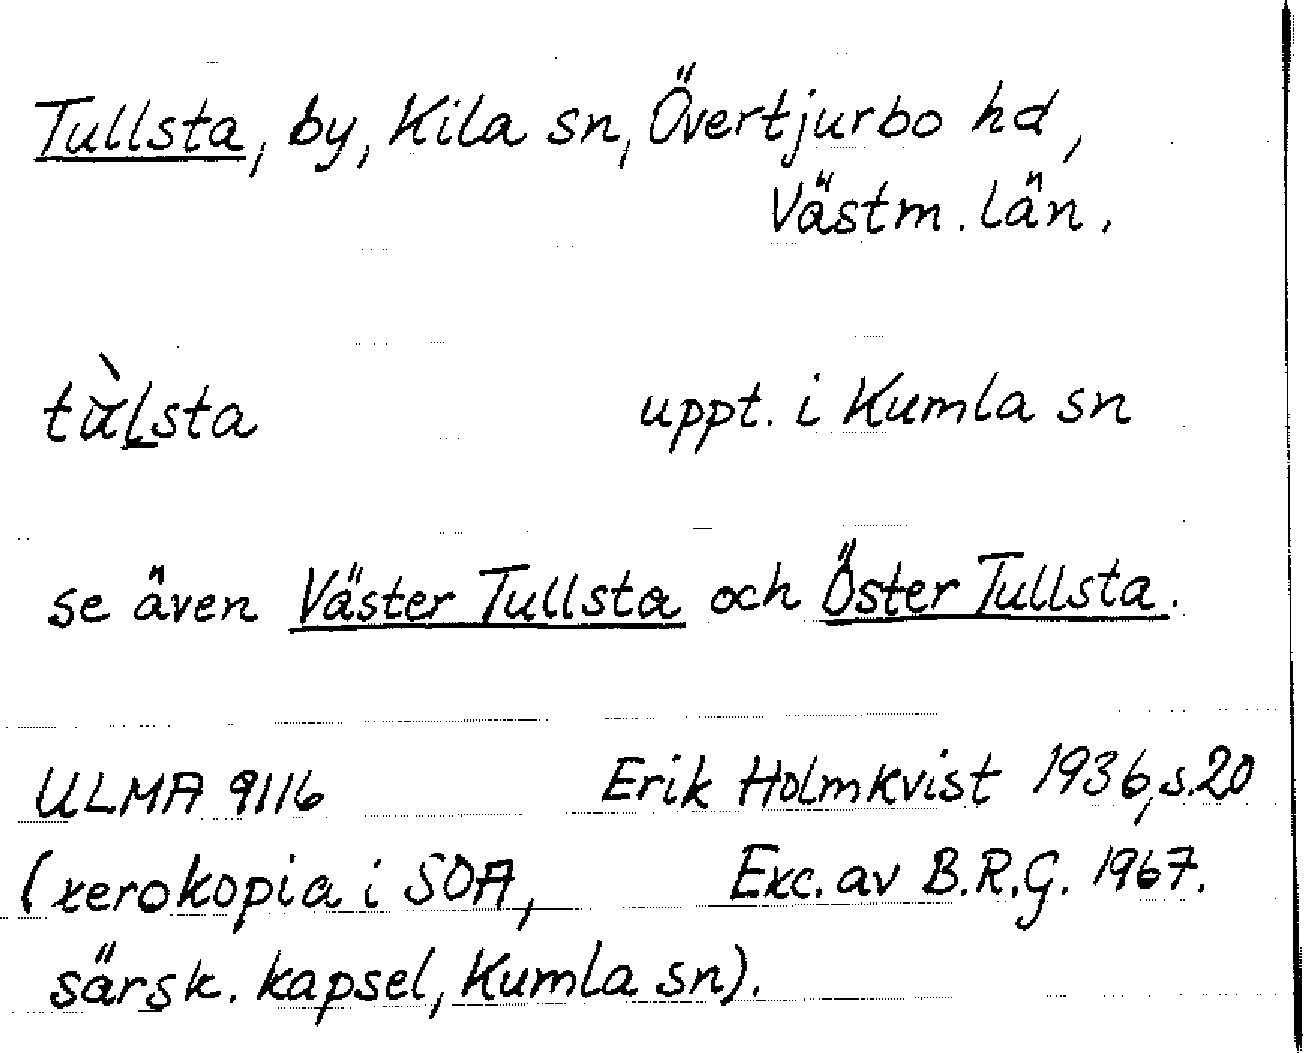 Tullsta, by, Kila sn, Övertjurbo hd,
Västm. län.
tùlsta uppt. i Kumla sn
se även Väster Tullsta och Öster Tullsta.
ULMA 9116 Erik Holmkvist 1936, s.20
(xerokopia i SOA, Exc. av B.R.G. 1967.
särsk. kapsel, Kumla sn).